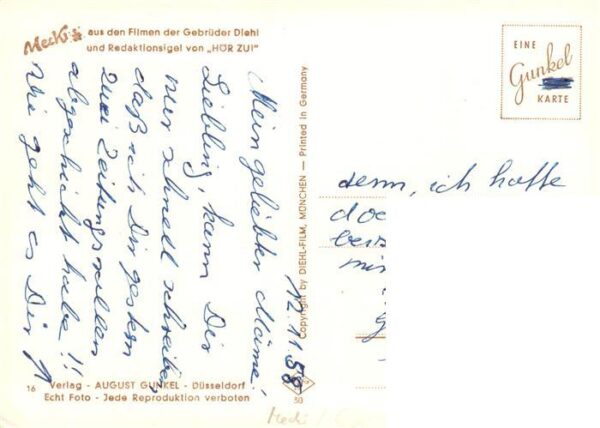 Mecki aus den Filmen der Gebrüder Diehl
und Redaktionsigel von „HÖR ZU!"
EINE
Gunkel
KARTE
12.11.58
Mein geliebter
Liebling, kann Dir
nur schnell schreiben
daß ich Dir gestern
Zwei Zeitungsrollen
abgeschickt habe!!
Wie geht es Dir?
denn, ich hoffe
doc
beis
mi
Copyright by DIEHL-FILM, MÜNCHEN — Printed in Germany
16 Verlag - AUGUST GUNKEL - Düsseldorf
Echt Foto - Jede Reproduktion verboten
50
Mecki